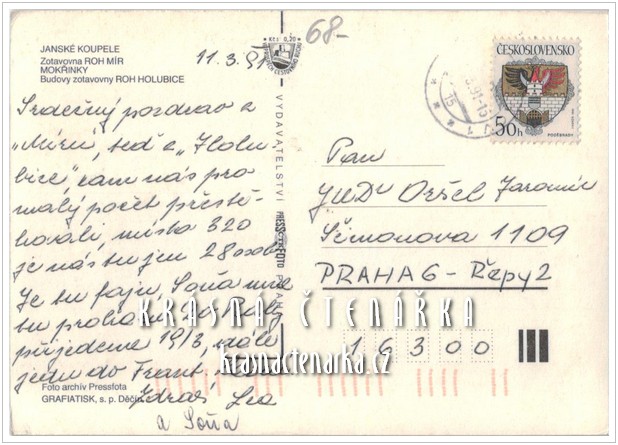 JANSKÉ KOUPELE
Zotavovna ROH MÍR
MOKŘINKY
Budovy zotavovny ROH HOLUBICE
11.3.91
Kčs 0,20
68-
Srdečný pozdrav z
„Míru", teď z „Holu-
bice", kam nás pro
malý počet přestě-
hovali, místo 320
je nás tu jen 28 osob.
Je tu fajn, Soňa mne
tu
přijedeme 19/3,
jedu do Frant.
Zdraví Lea
a Soňa
Foto archív Pressfota
GRAFIATISK, s. p. Děčín
VYDAVATELSTVÍ PRESSFOTO PRAHA
ČESKOSLOVENSKO
50h
PODĚBRADY
Pan
JUDr Oršel Jaromír
Šímonova 1109
PRAHA 6 - Řepy 2
16300
KRÁSNÁ ČTENÁŘKA
krasnactenarka.cz